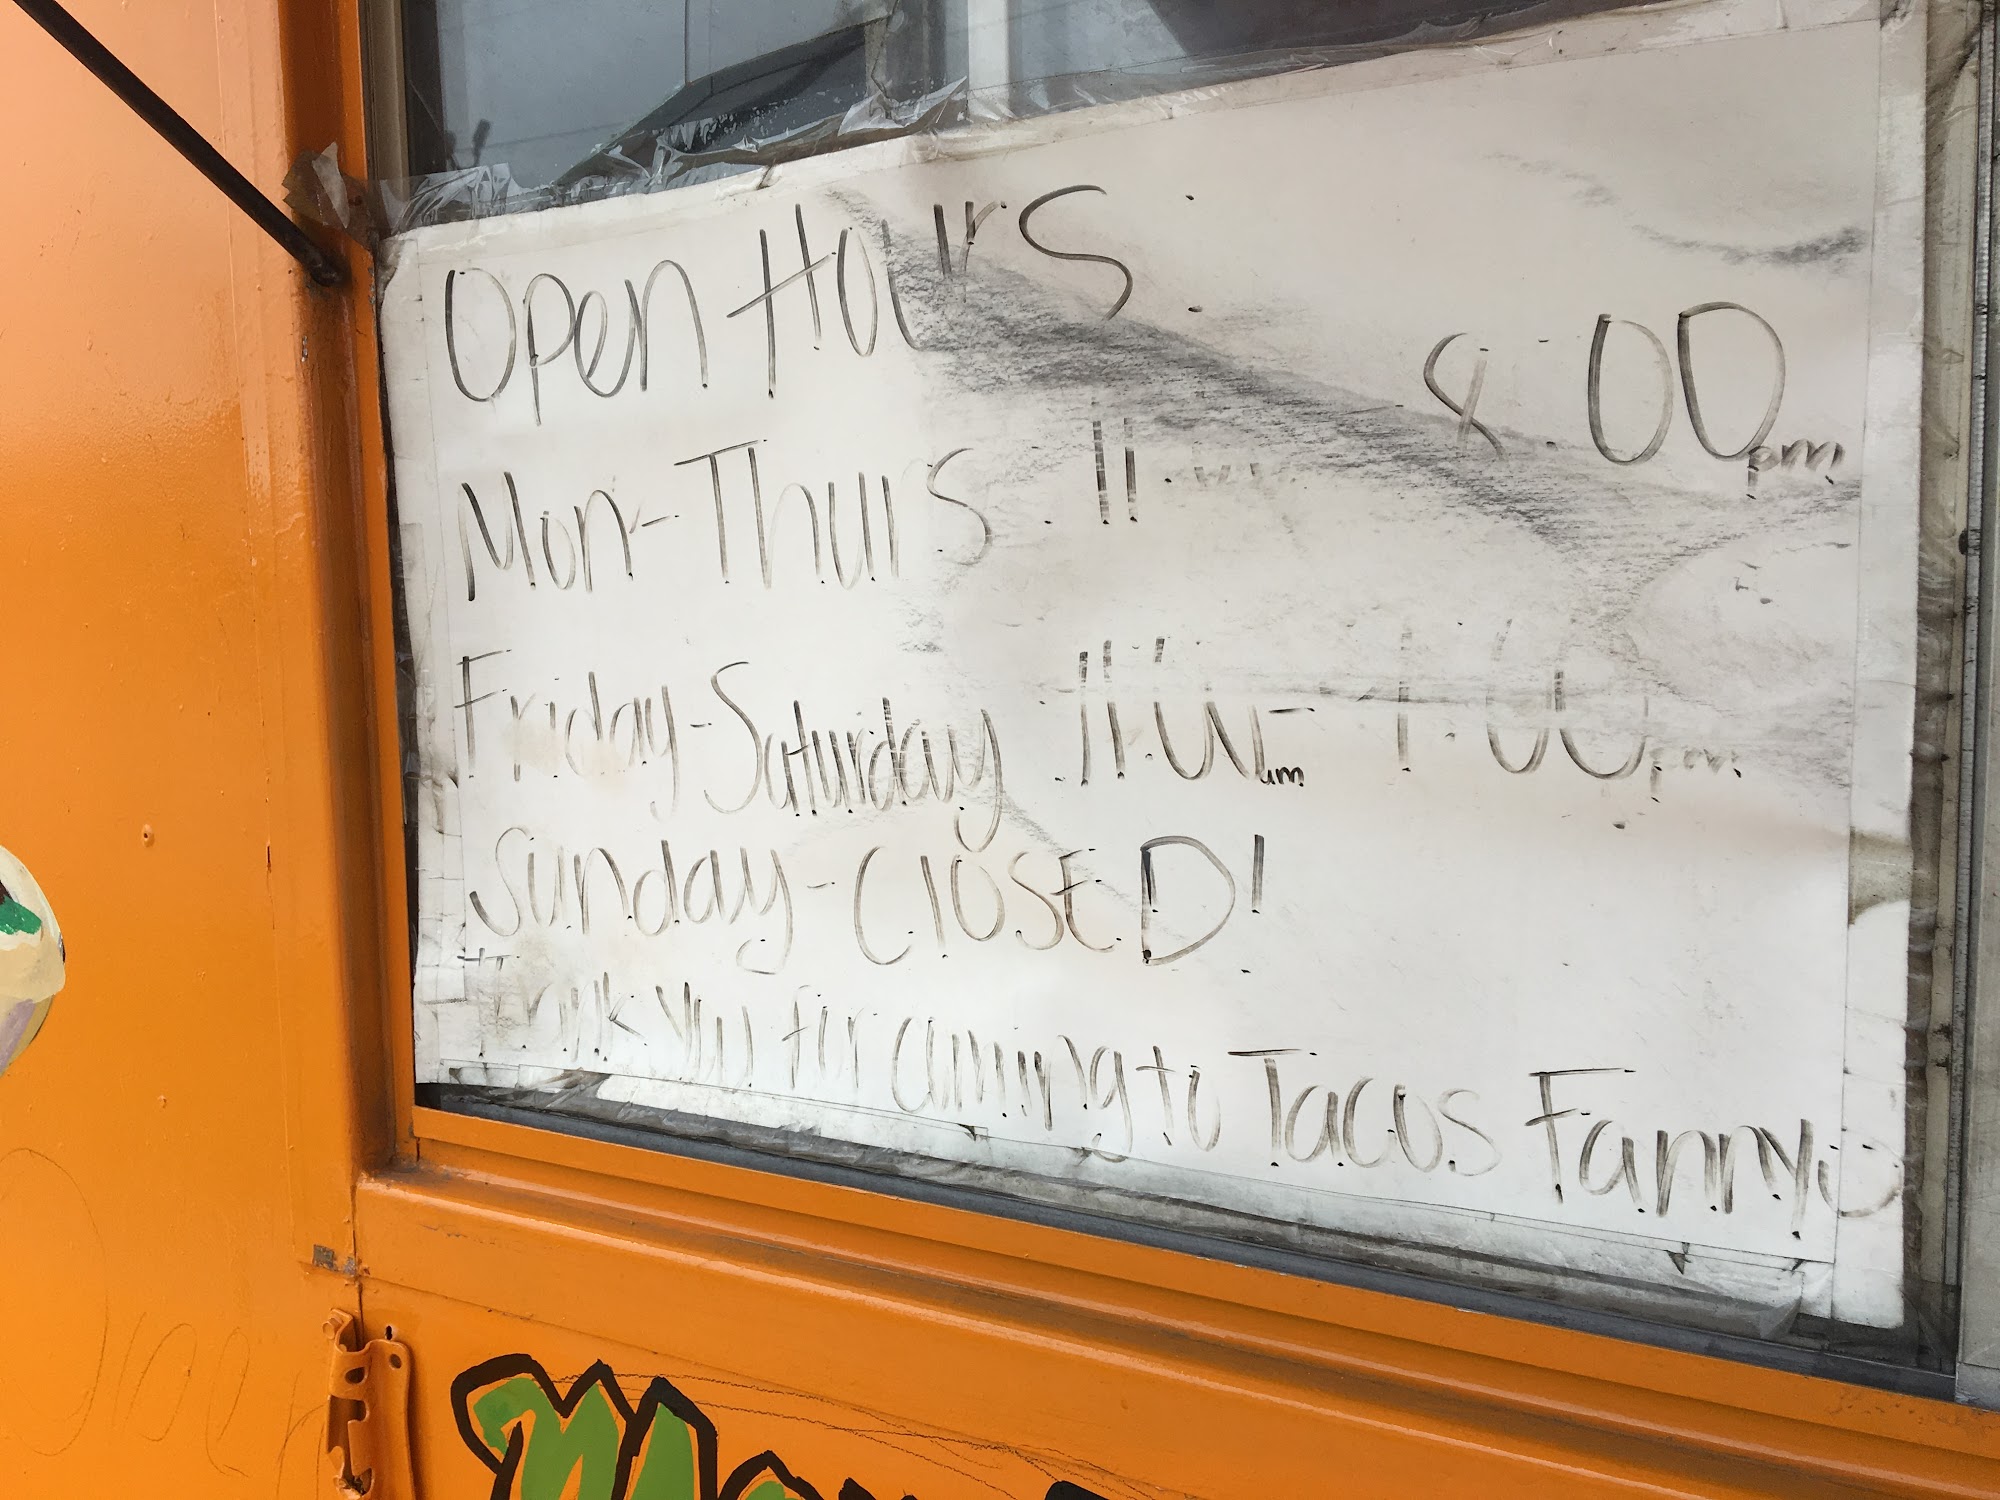 Open Hours:
Mon-Thurs: 11: 8:00pm
Friday-Saturday: 11:00am- :00pm
Sunday-ClOSED!
Thank You for coming to Tacos Fanny